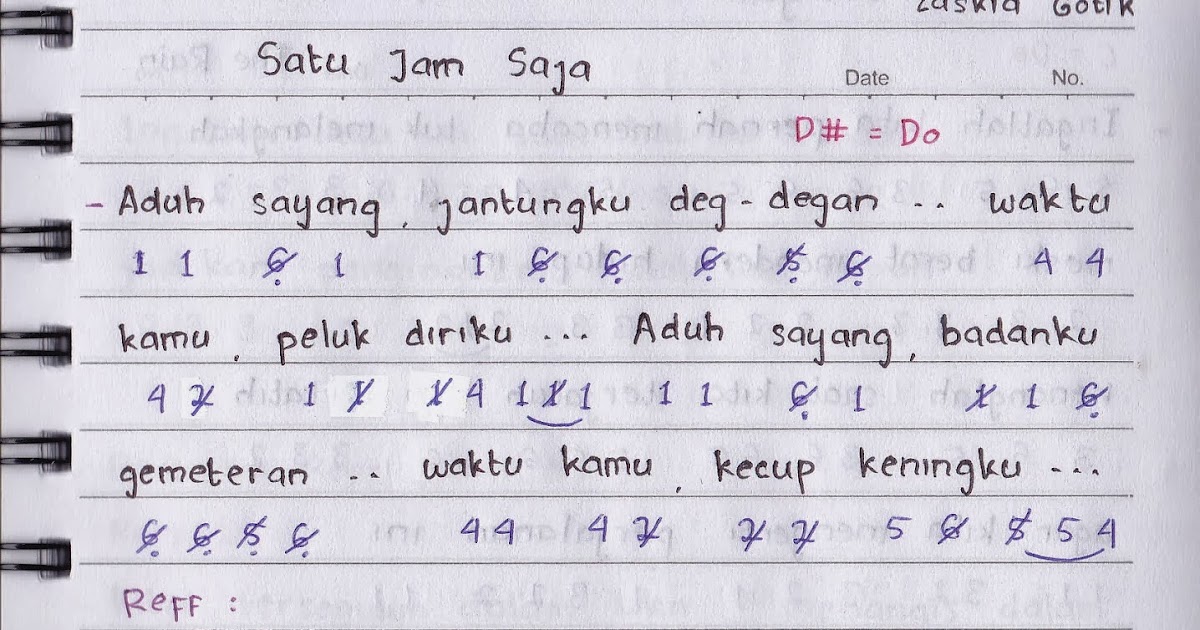 Zaskia Gotik
Satu Jam Saja
Date No.
D# = Do
- Aduh sayang, jantungku deg-degan .. waktu
1 1 6̸̣ 1 1 6̸̣ 6̸̣ 6̸̣ 5̸̣ 6̸̣ 4 4
kamu, peluk diriku ... Aduh sayang, badanku
4 2̸ 1 1̸ 1̸ 4 1 1̸ 1 1 1 6̸̣ 1 1̸ 1 6̸̣
gemeteran .. waktu kamu, kecup keningku ...
6̸̣ 6̸̣ 5̸̣ 6̸̣ 4 4 4 2̸ 2̸ 2̸ 5 6̸ 5̸ 5 4
Reff :